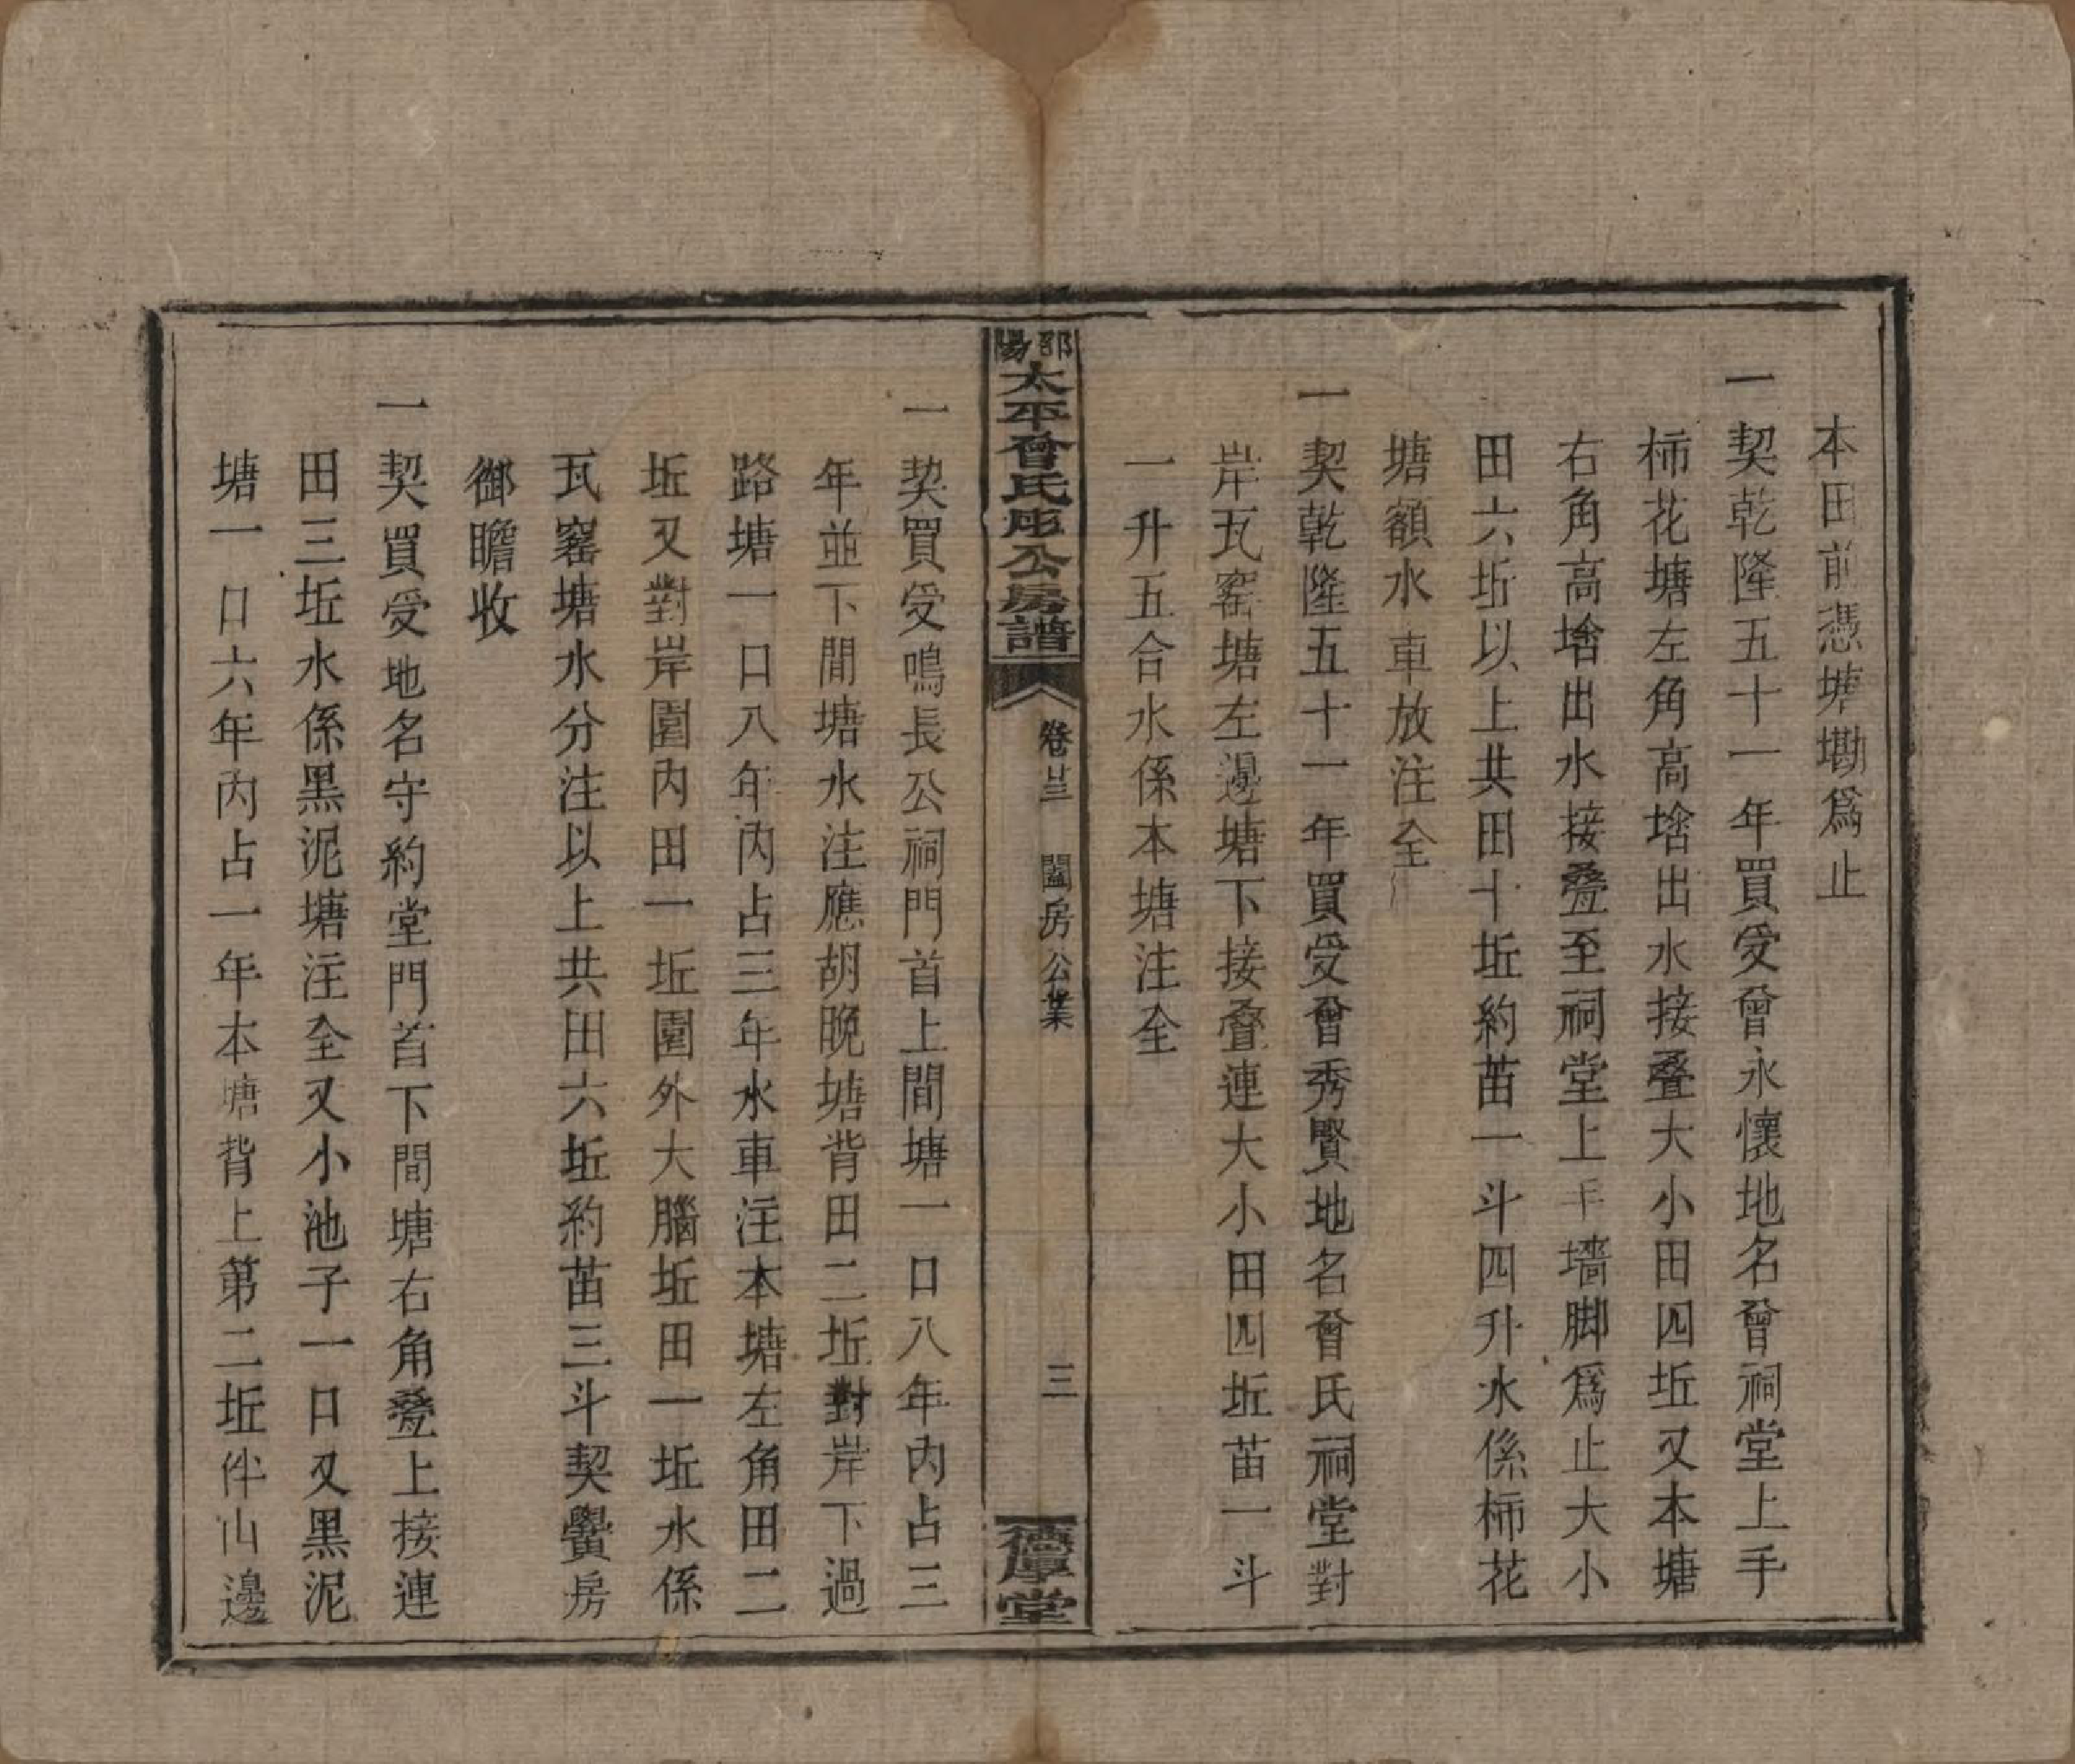 本田前憑塘墈爲止
一契乾隆五十一年買受曾永懷地名曾祠堂上手
柿花塘左角高塆出水接叠大小田四坵又本塘
右角高塆出水接叠至祠堂上手墻脚爲止大小
田六坵以上共田十坵約苗一斗四升水係柿花
塘額水車放注全
一契乾隆五十一年買受曾秀賢地名曾氏祠堂對
岸瓦窰塘左邊塘下接叠連大小田四坵苗一斗
一升五合水係本塘注全
邵陽太平曾氏彤公房譜
卷廿三 闔房公業
三
德厚堂
一契買受鳴長公祠門首上間塘一口八年內占三
年並下間塘水注應胡晚塘背田二坵對岸下過
路塘一口八年內占三年水車注本塘左角田二
坵又對岸園內田一坵園外大腦坵田一坵水係
瓦窰塘水分注以上共田六坵約苗三斗契黌房
御瞻收
一契買受地名守約堂門首下間塘右角叠上接連
田三坵水係黑泥塘注全又小池子一口又黑泥
塘一口六年內占一年本塘背上第二坵伴山邊